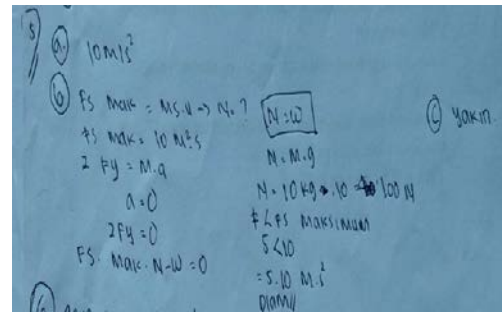 5
a. 10 m/s²
b Fs Mak = Ms.N → N = ?
Fs Mak = 10 M²s
Σ Fy = M.a
a = 0
ΣFy = 0
Fs. Mak. N-W = 0
N = W
N = M.g
N = 10 kg . 10 = 100 N
F < Fs Maksimum
5 < 10
= 5.10 M.s²
Diam//
c yakin
6